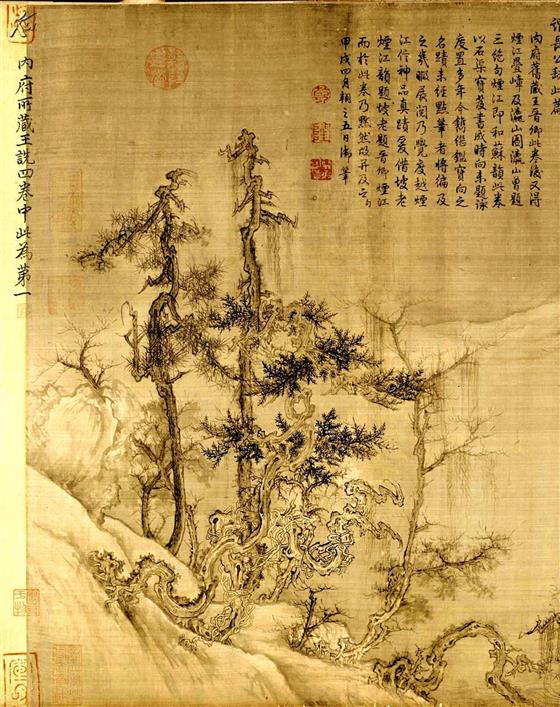 內府舊藏王晉卿此卷後又得
煙江疊嶂及瀛山圖瀛山曾題
三絕句煙江即和蘇韻此卷
以石渠寶笈書成時向未題詠
庋置多年今鐫繼鑑寶向之
名蹟未經點筆者將徧及
之幾暇展閱乃覺度越煙
江信神品真蹟爰借坡老
煙江韻題坡老題晉卿煙江
而於此卷乃默然故并及之
甲戌四月朔之五日御筆
內府所藏王詵四卷中此為第一